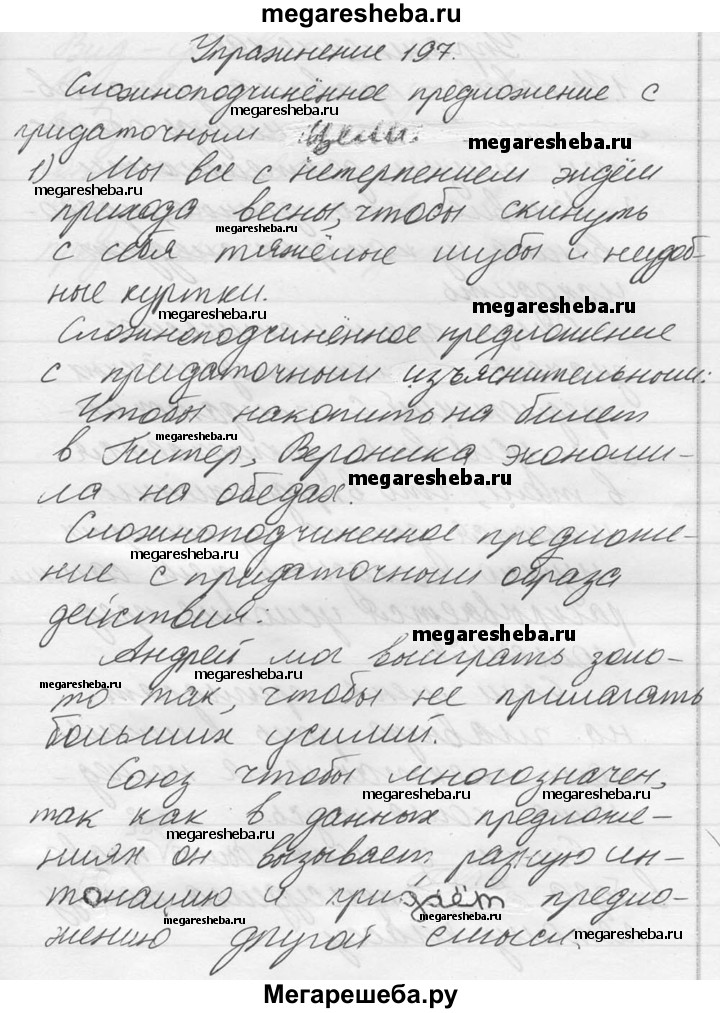 megaresheba.ru
Упражнение 197.
Сложноподчинённое предложение с
megaresheba.ru
придаточным цели.
megaresheba.ru
1) Мы все с нетерпением ждём
megaresheba.ru
прихода весны, чтобы скинуть
megaresheba.ru
с себя тяжёлые шубы и неудоб-
ные куртки.
megaresheba.ru
megaresheba.ru
Сложноподчинённое предложение
с придаточным изъяснительным:
Чтобы накопить на билет
megaresheba.ru
в Питер, Вероника экономи-
ла на обедах.
megaresheba.ru
Сложноподчиненное предложе-
megaresheba.ru
ние с придаточным образа
действия:
megaresheba.ru
Андрей мог выиграть золо-
megaresheba.ru
то так, чтобы не прилагать
больших усилий.
Союз чтобы многозначен,
megaresheba.ru
так как в данных предложе-
megaresheba.ru
ниях он вызывает разную ин-
тонацию и придаёт предло-
megaresheba.ru
жению другой смысл.
megaresheba.ru
Мегарешеба.ру